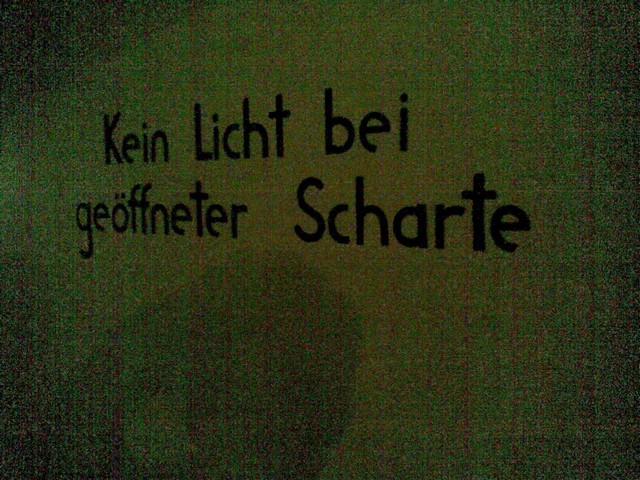 Kein Licht bei
geöffneter Scharte